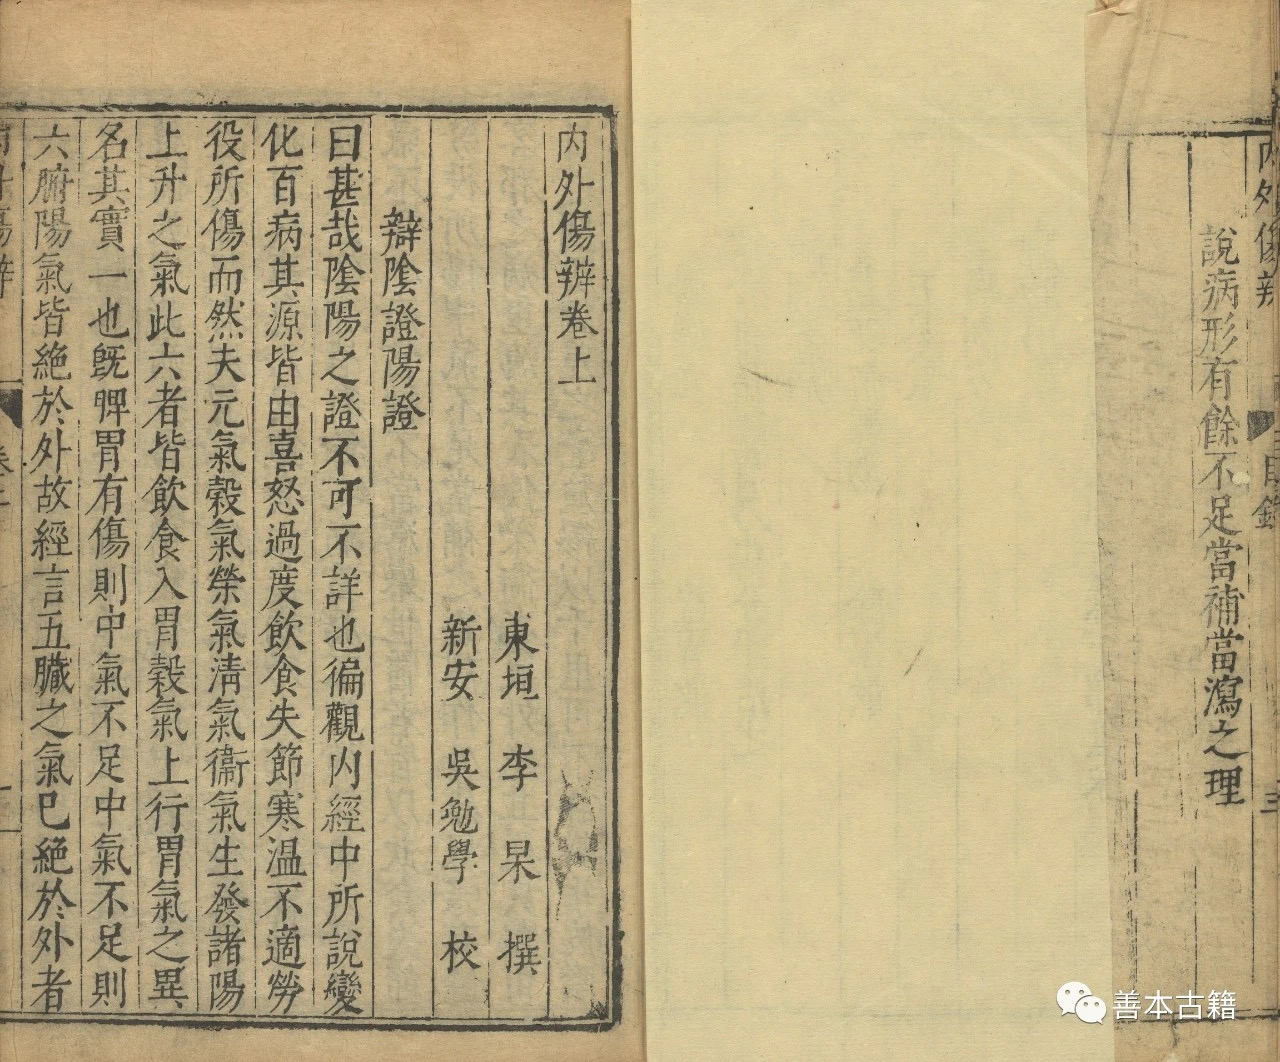 內外傷辨
目錄
三
說病形有餘不足當補當瀉之理
內外傷辨卷上
東垣 李 杲 撰
新安 吳勉學 校
辯陰證陽證
曰甚哉陰陽之證不可不詳也徧觀內經中所說變
化百病其源皆由喜怒過度飲食失節寒温不適勞
役所傷而然夫元氣穀氣榮氣淸氣衞氣生發諸陽
上升之氣此六者皆飲食入胃穀氣上行胃氣之異
名其實一也旣脾胃有傷則中氣不足中氣不足則
六腑陽氣皆絕於外故經言五臟之氣已絕於外者
內外傷辨
卷上
善本古籍